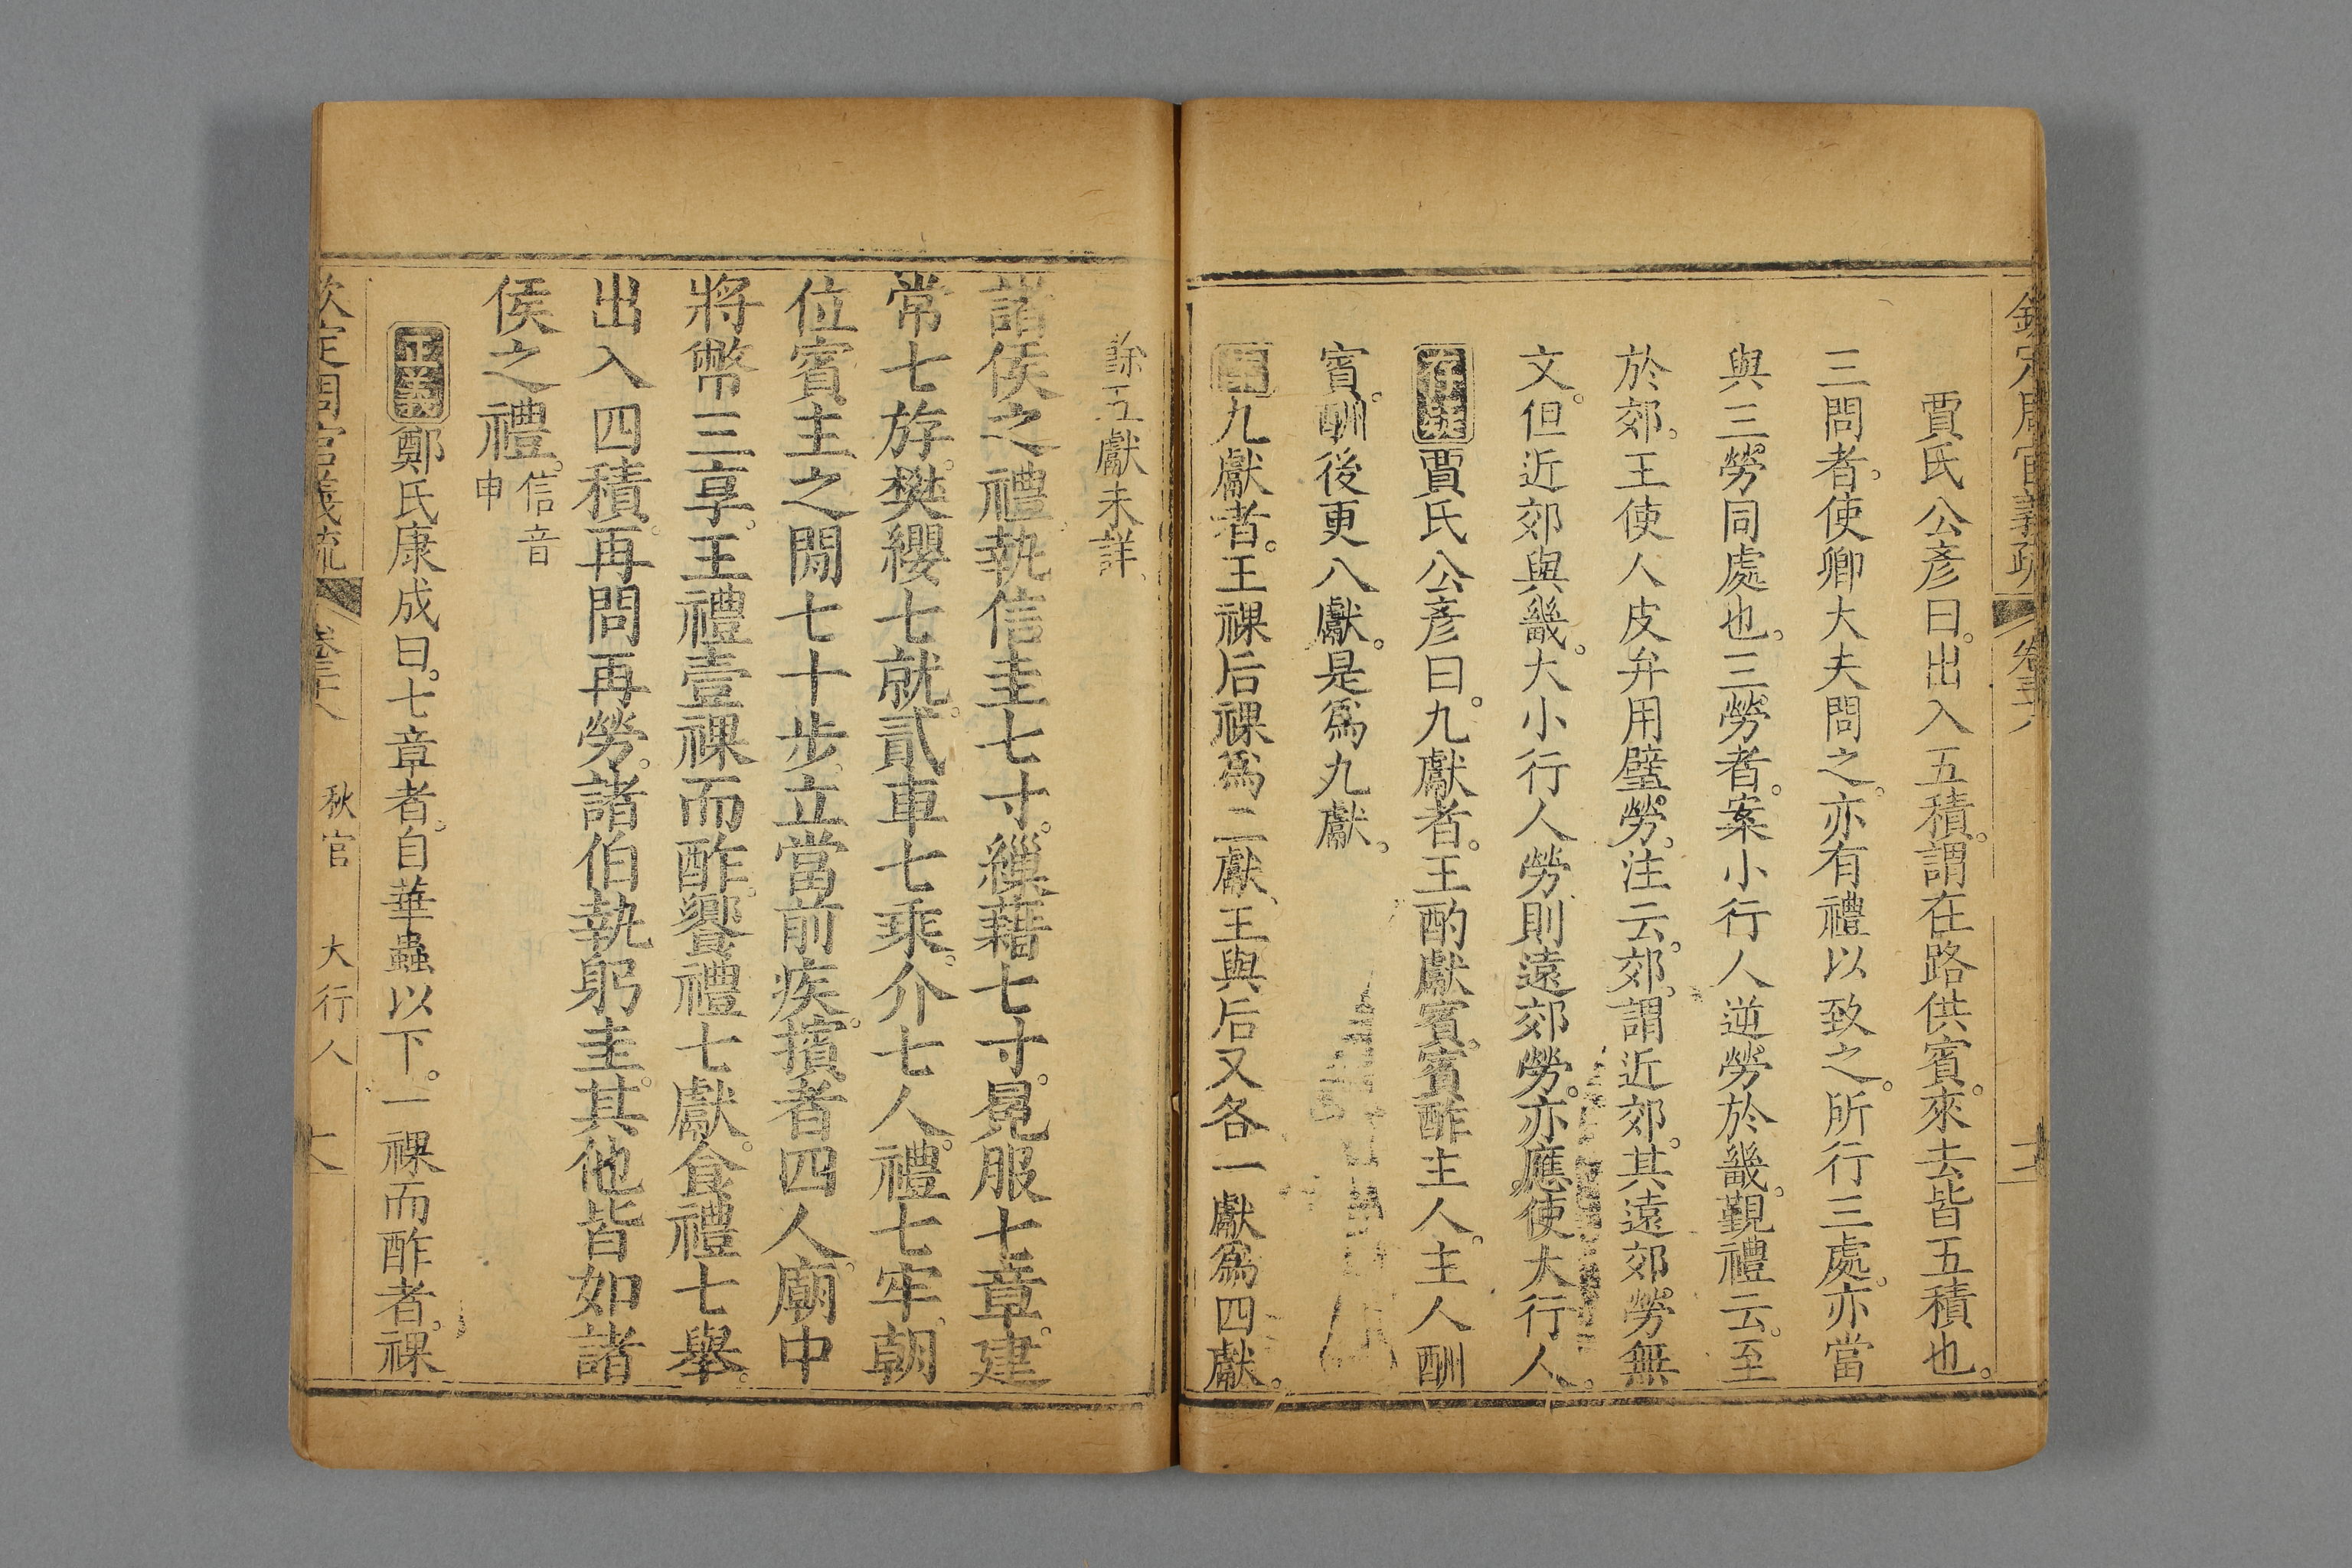 欽定周官義疏 卷三十八
賈氏公彥曰。出入五積。謂在路供賓。來去皆五積也。
三問者。使卿大夫問之。亦有禮以致之。所行三處。亦當
與三勞同處也。三勞者。案小行人逆勞於畿。覲禮云。至
於郊。王使人皮弁用璧勞。注云。郊。謂近郊。其遠郊勞無
文。但近郊與畿。大小行人勞。則遠郊勞。亦應使大行人。
存疑賈氏公彥曰。九獻者。王酌獻賓。賓酢主人。主人酬
賓。酬後更八獻。是爲九獻。
九獻者。王祼后祼爲二獻、王與后又各一獻爲四獻。
餘五獻未詳、
諸侯之禮。執信圭七寸。繅藉七寸。冕服七章。建
常七斿。樊纓七就。貳車七乘。介七人。禮七牢。朝
位賓主之閒七十步。立當前疾。擯者四人。廟中
將幣三享。王禮壹祼而酢。饗禮七獻。食禮七舉。
出入四積。再問再勞。諸伯執躬圭。其他皆如諸
侯之禮。信音申
正義鄭氏康成曰。七章者。自華蟲以下。一祼而酢者。祼
欽定周官義疏 卷三十八 秋官 大行人